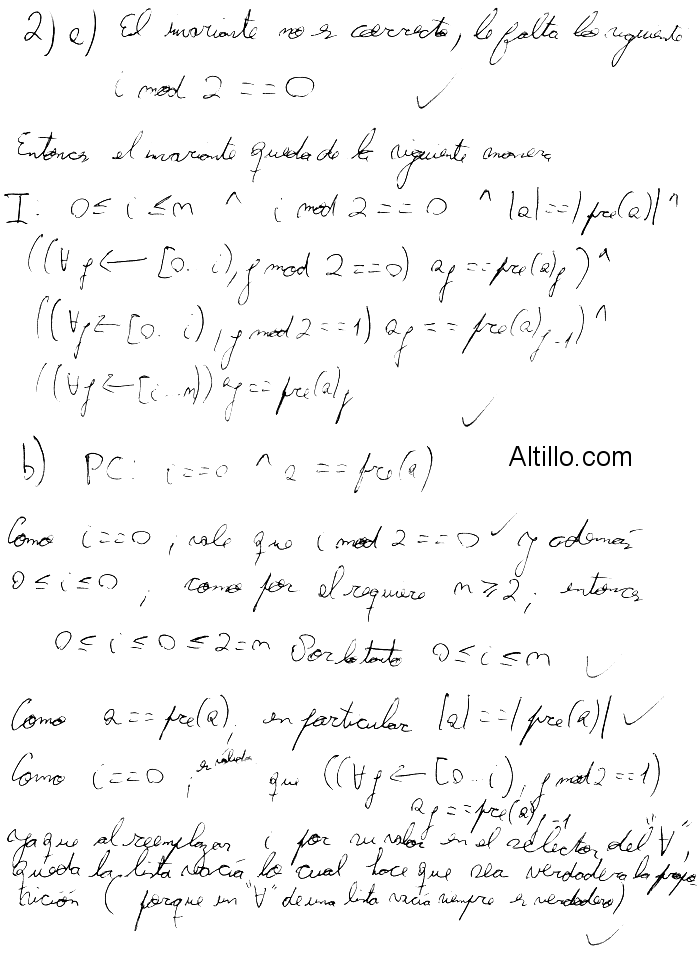 2) a) El invariante no es correcto, le falta lo siguiente
i mod 2 == 0 ✓
Entonces el invariante queda de la siguiente manera
I: 0 ≤ i ≤ n ^ i mod 2 == 0 ^ |a| == |pre(a)| ^
((∀ j ← [0..i), j mod 2 == 0) aj == pre(a)j) ^
((∀ j ← [0..i), j mod 2 == 1) aj == pre(a)j-1) ^
((∀ j ← [i..n)) aj == pre(a)j ✓
b) PC: i == 0 ^ a == pre(a)
Altillo.com
Como i == 0, vale que i mod 2 == 0 ✓ y además
0 ≤ i ≤ 0, como por el requiere n ≥ 2, entonces
0 ≤ i ≤ 0 ≤ 2 = n Por lo tanto 0 ≤ i ≤ n ✓
Como a == pre(a), en particular |a| == |pre(a)| ✓
Como i == 0, es válido que ((∀ j ← [0..i), j mod 2 == 1)
aj == pre(a)j-1
ya que al reemplazar i por su valor en el selector del "∀",
queda la lista vacía lo cual hace que sea verdadera la propo
sición (porque un "∀" de una lista vacía siempre es verdadero)
✓